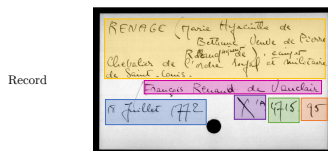 Record
RENAGE (Marie Hyacinthe de
Béthune Veuve de Pierre
de
Chevalier de l'ordre royal et militaire
de Saint-Louis.
François Renaud de Vauclair
18 Juillet 1772 X 1A 4715 95